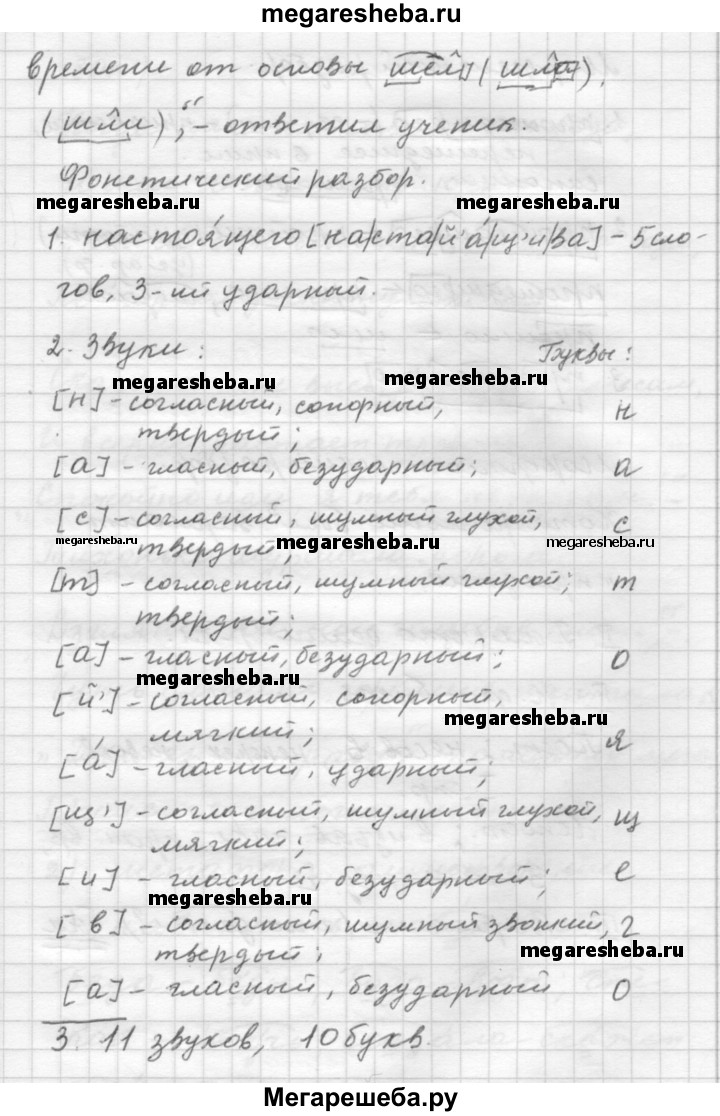 megaresheba.ru
времени от основы шёл (шла),
(шли)", – ответил ученик.
Фонетический разбор.
megaresheba.ru megaresheba.ru
1. настоя́щего [на|ста|й'а́|щ'и|ва] – 5 сло-
гов, 3-ий ударный.
2. Звуки: Буквы:
megaresheba.ru megaresheba.ru
[н] – согласный, сонорный, н
твердый;
[а] – гласный, безударный; а
[с] – согласный, шумный глухой, с
megaresheba.ru megaresheba.ru megaresheba.ru
твердый;
[т] – согласный, шумный глухой; т
твердый;
[а] – гласный, безударный; о
megaresheba.ru
[й'] – согласный, сонорный,
megaresheba.ru
мягкий; я
[а́] – гласный, ударный;
[щ'] – согласный, шумный глухой, щ
мягкий;
[и] – гласный, безударный; е
megaresheba.ru
[в] – согласный, шумный звонкий, г
твердый;
megaresheba.ru
[а] – гласный, безударный о
3. 11 звуков, 10 букв.
Мегарешеба.ру